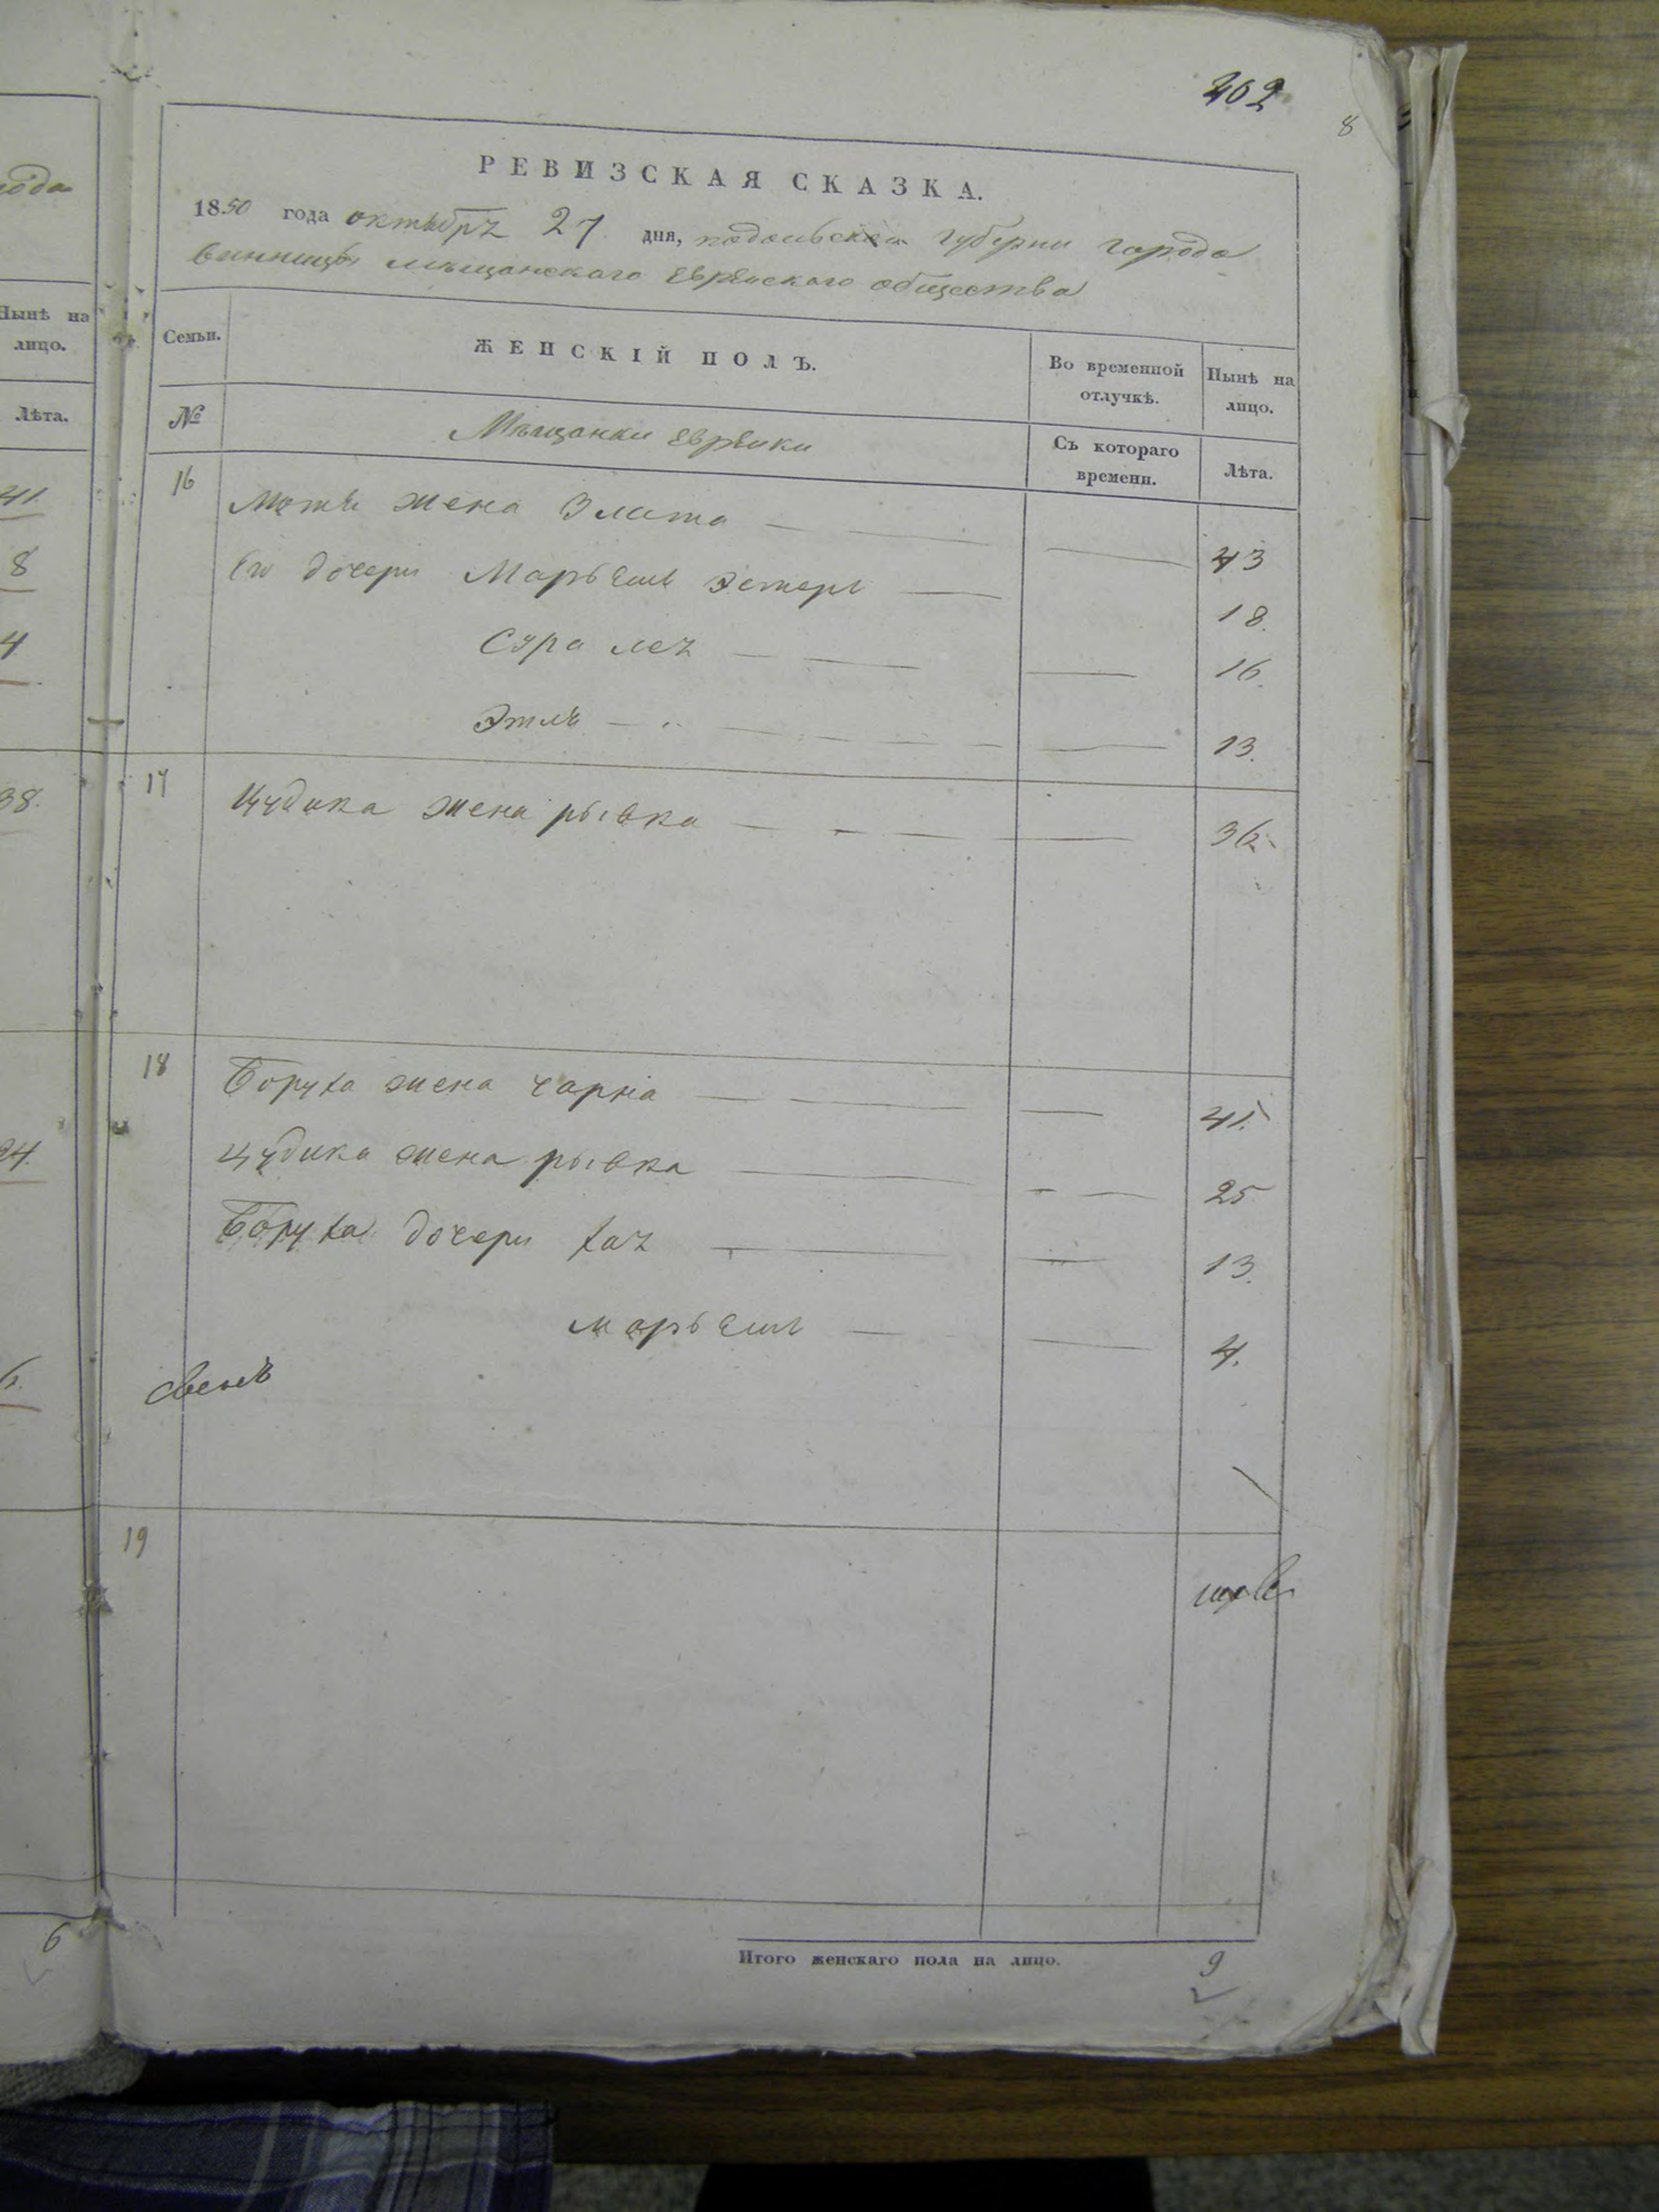 202
8
РЕВИЗСКАЯ СКАЗКА.
1850 года октября 27 дня, подольской губернии города
винницы мещанского еврейского общества
Нынѣ на
лицо.
Лѣта.
41
8
4
38.
24.
6
Семьи.
ЖЕНСКІЙ ПОЛЪ.
Во временной
отлучкѣ.
Нынѣ на
лицо.
№
Мещанки еврейки
Съ котораго
времени.
Лѣта.
16 Мотя жена Злата 43
Его дочери Марьемъ Эстеръ 18.
Сура лея 16.
Этля 13.
17 Иудика жена рывка 36
18 Боруха жена чарна 41.
Иудика жена рывка 25
Боруха дочери хая 13.
марьемъ 4.
19
Итого женскаго пола на лицо. 9